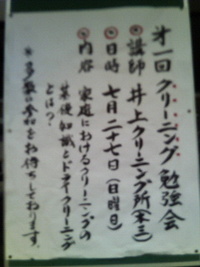 第一回クリーニング勉強会
◎講師 井上クリーニング所(本三)
◎日時 七月二十七日(日曜日)
◎内容 家庭におけるクリーニングの
基礎知識とドライクリーニング
とは?
※多数の参加をお待ちしております。